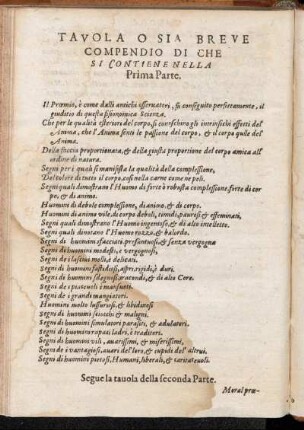 TAVOLA O SIA BREVE
COMPENDIO DI CHE
SI CONTIENE NELLA
Prima Parte.
Il Proemio, è come dalli antichi osservatori, si conseguito perfettamente, il
giudicio di questa fisionomica Scienza.
Che per la qualità esteriori del corpo, si conoschino gli intrinsichi effetti del
Anima, che l'Anima senti le passione del corpo, & il corpo quelle del
Anima.
Della faccia proportionata, & della giusta proportione del corpo amica all'
ordine di natura.
Segni per i quali si manifesta la qualità della complessione,
Del colore di tutto il corpo, così nella carne come ne peli.
Segni quali dimostrano l'Huomo di forte è robusta complessione, forte di cor-
po, & di animo.
Huomini di debole complessione, di animo, & di corpo.
Huomini di animo vile, di corpo debili, timidi, paurosi & effeminati,
Segni quali dimostrano l'Huomo ingenoso, & di alto intelletto.
Segni quali dimostrano l'Huomo rozzo, & balordo.
Segni di huomini sfacciati, presuntuosi, & senza vergogna
Segni di huomini modesti, è vergognosi.
Segni de lascivi molli, è delicati.
Segni di huomini fastidiosi, aspri, rigidi, è duri.
Segni di huomini sdegnosi, iracondi, & di alto Core.
Segni de i patienti è mansueti.
Segni de i grandi mangiatori.
Huomini molto lussuriosi, & libidinosi
Segni di huomini sciocchi & maligni.
Segni di huomini simulatori parasiti, & adulatori.
Segni di huomini rapaci ladri, è traditori.
Segni di huomini vili, avarissimi, & miserissimi,
Segni de i vantagiosi, avari del loro, & cupidi del'altrui,
Segni di huomini pietosi, Humani, liberali, & caritatevoli.
Segue la tavola della seconda Parte.
Meral præ-